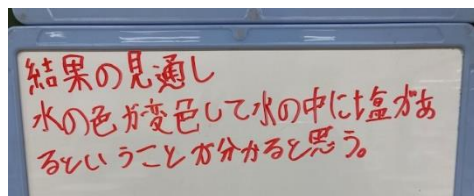 結果の見通し
水の色が変色して水の中に塩があ
るということが分かると思う。